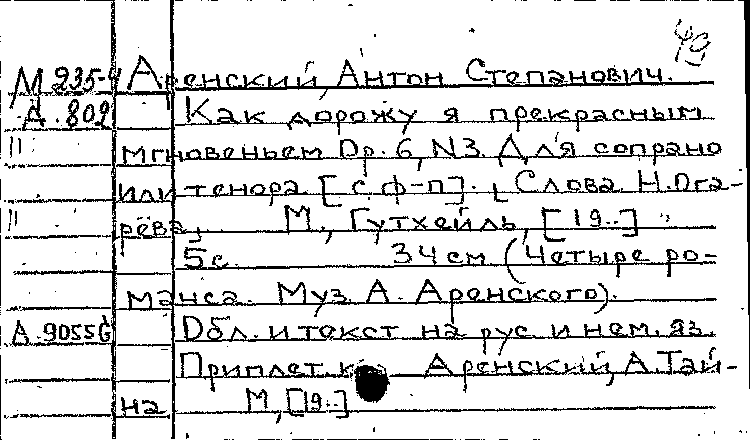 49
М 235-4 Аренский, Антон Степанович.
А. 802 Как дорожу я прекрасным
" мгновеньем Op. 6, N3. Для сопрано
или тенора [с ф-п]. Слова Н. Ога-
" рёва, М., Гутхейль, [19..]
5 с. 34 см (Четыре ро-
манса. Муз. А. Аренского).
А. 9055б Обл. и текст на рус. и нем. яз.
Приплет. к Аренский, А. Тай-
на М, [19..]